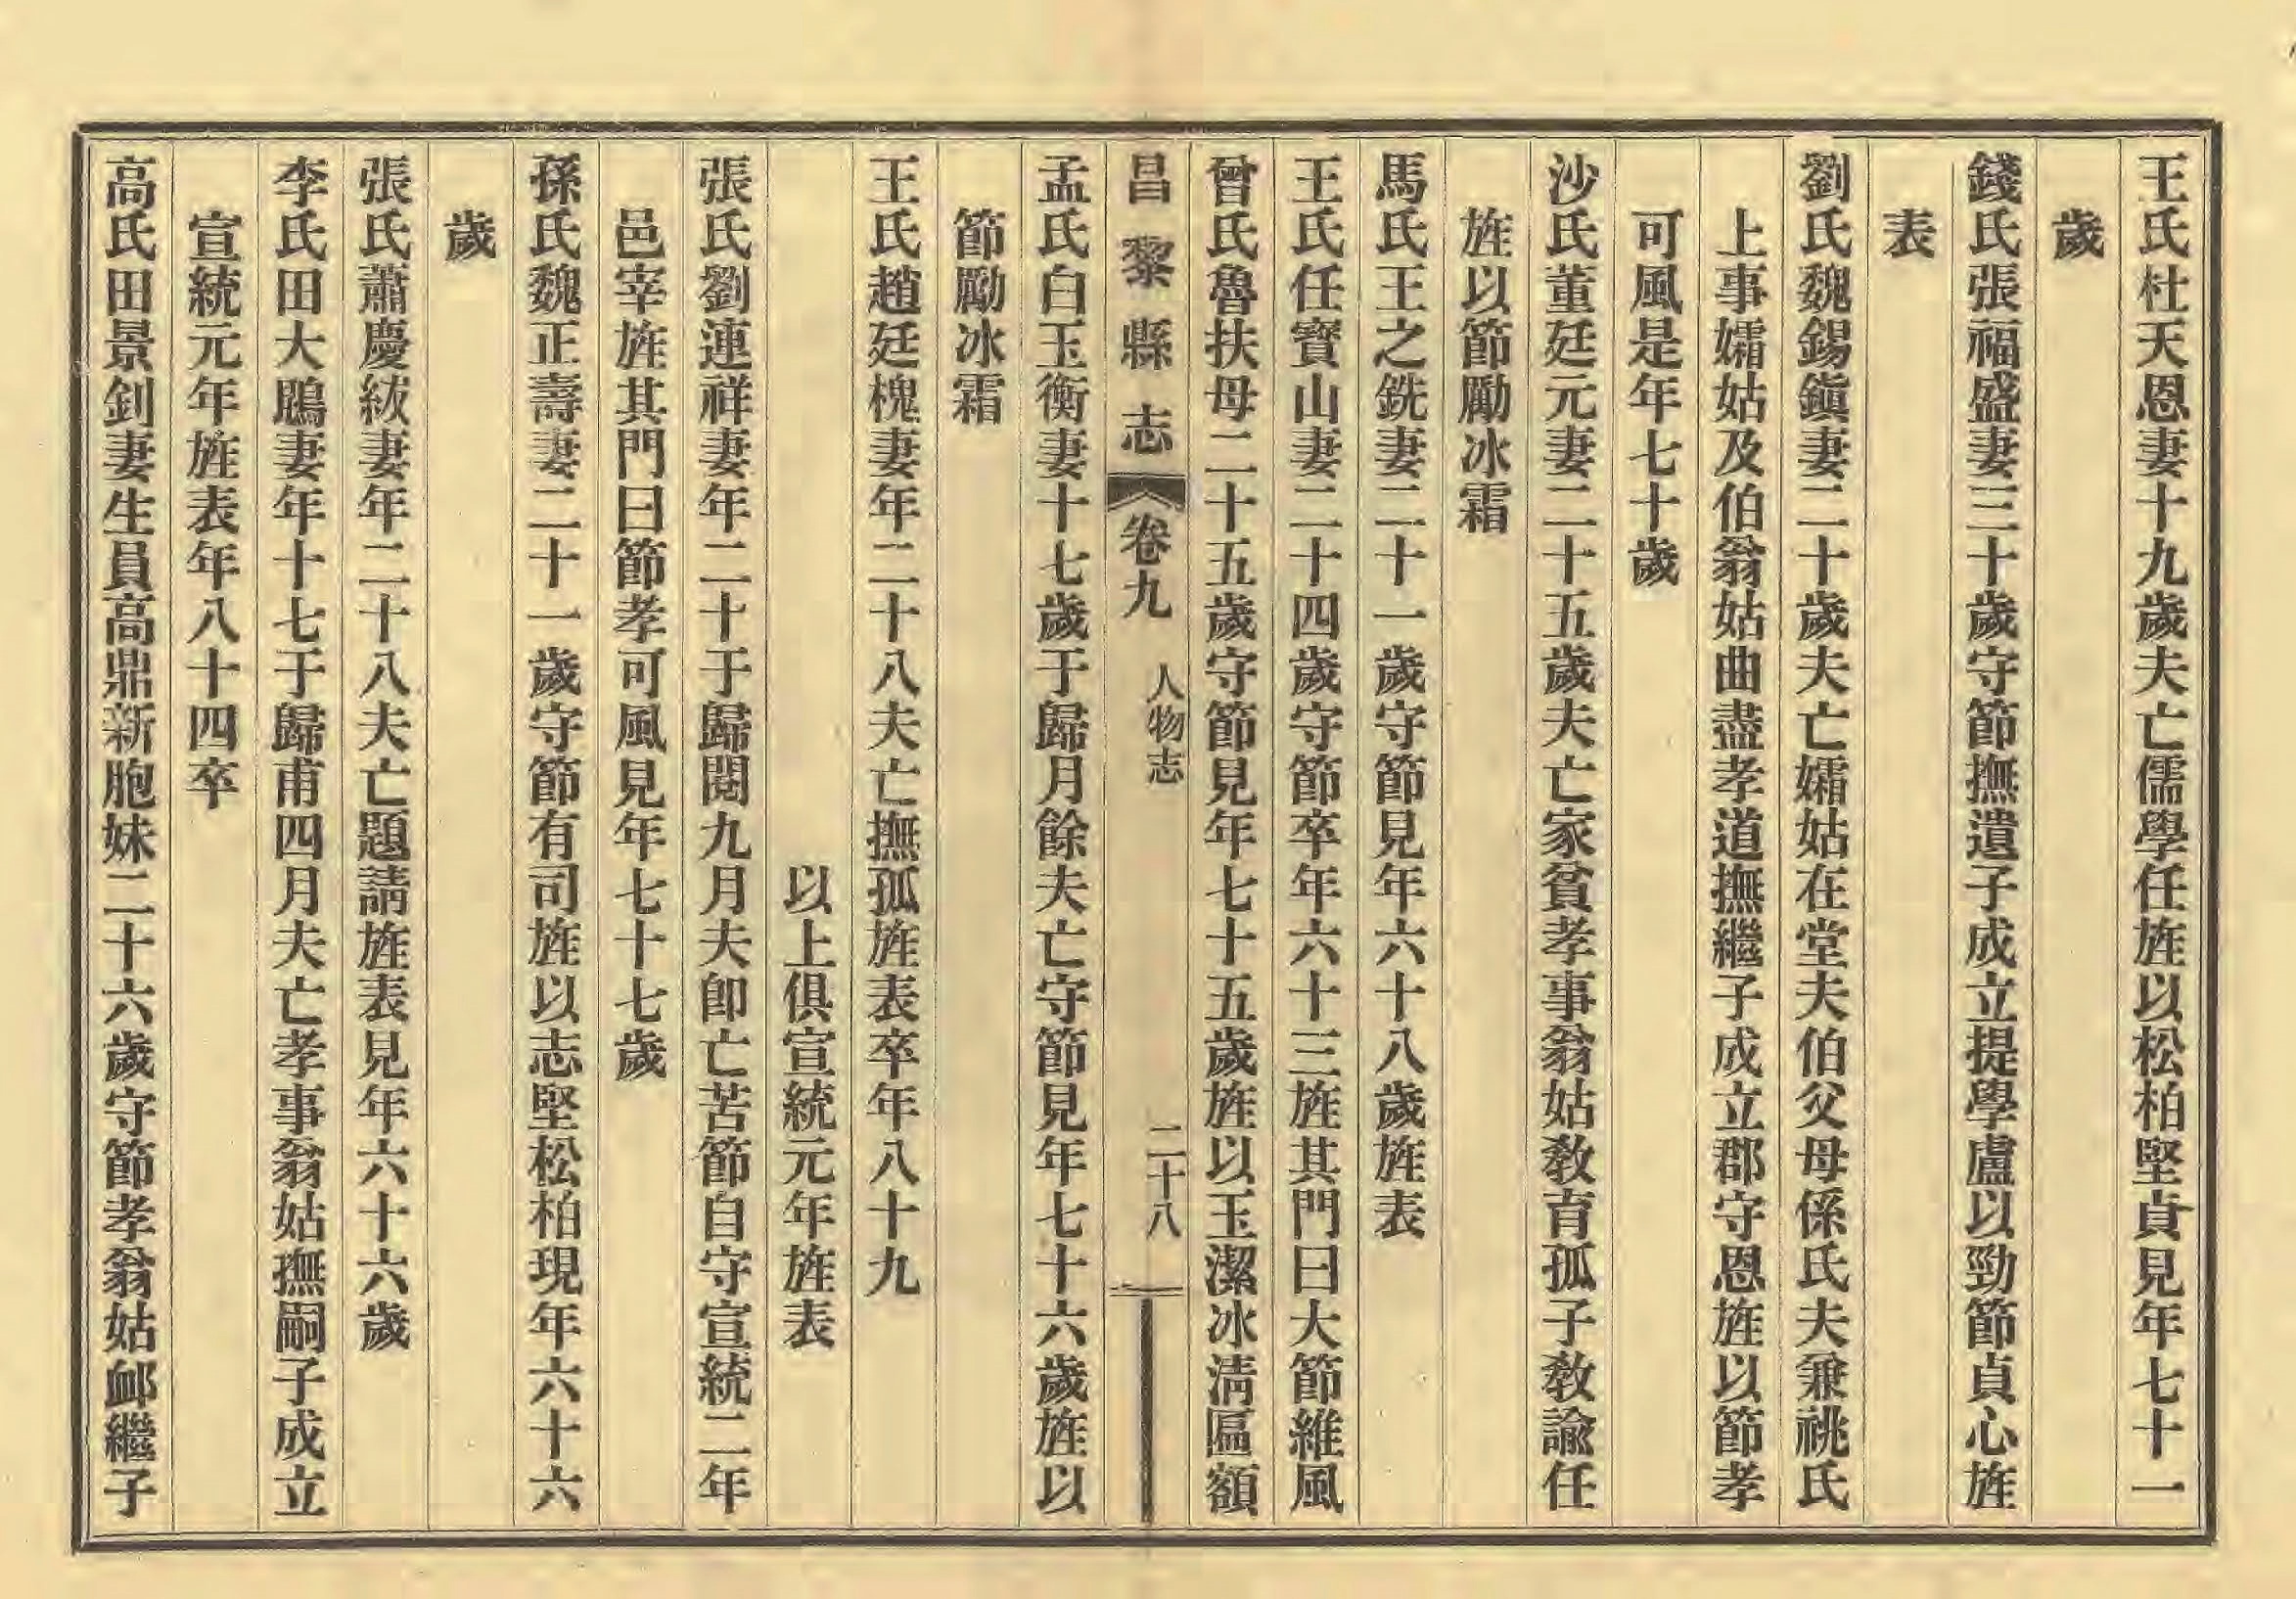 王氏杜天恩妻十九歲夫亡儒學任旌以松柏堅貞見年七十一
歲
錢氏張福盛妻三十歲守節撫遺子成立提學盧以勁節貞心旌
表
劉氏魏錫鎭妻二十歲夫亡孀姑在堂夫伯父母係氏夫兼祧氏
上事孀姑及伯翁姑曲盡孝道撫繼子成立郡守恩旌以節孝
可風是年七十歲
沙氏董廷元妻二十五歲夫亡家貧孝事翁姑敎育孤子敎諭任
旌以節勵冰霜
馬氏王之銑妻二十一歲守節見年六十八歲旌表
王氏任寶山妻二十四歲守節卒年六十三旌其門曰大節維風
曾氏魯扶母二十五歲守節見年七十五歲旌以玉潔冰淸區額
昌黎縣志 卷九 人物志 二十八
孟氏白玉衡妻十七歲于歸月餘夫亡守節見年七十六歲旌以
節勵冰霜
王氏趙廷槐妻年二十八夫亡撫孤旌表卒年八十九
以上俱宣統元年旌表
張氏劉連祥妻年二十于歸閱九月夫卽亡苦節自守宣統二年
邑宰旌其門曰節孝可風見年七十七歲
孫氏魏正壽妻二十一歲守節有司旌以志堅松柏現年六十六
歲
張氏蕭慶紱妻年二十八夫亡題請旌表見年六十六歲
李氏田大鵰妻年十七于歸甫四月夫亡孝事翁姑撫嗣子成立
宣統元年旌表年八十四卒
高氏田景釗妻生員高鼎新胞妹二十六歲守節孝翁姑䘏繼子